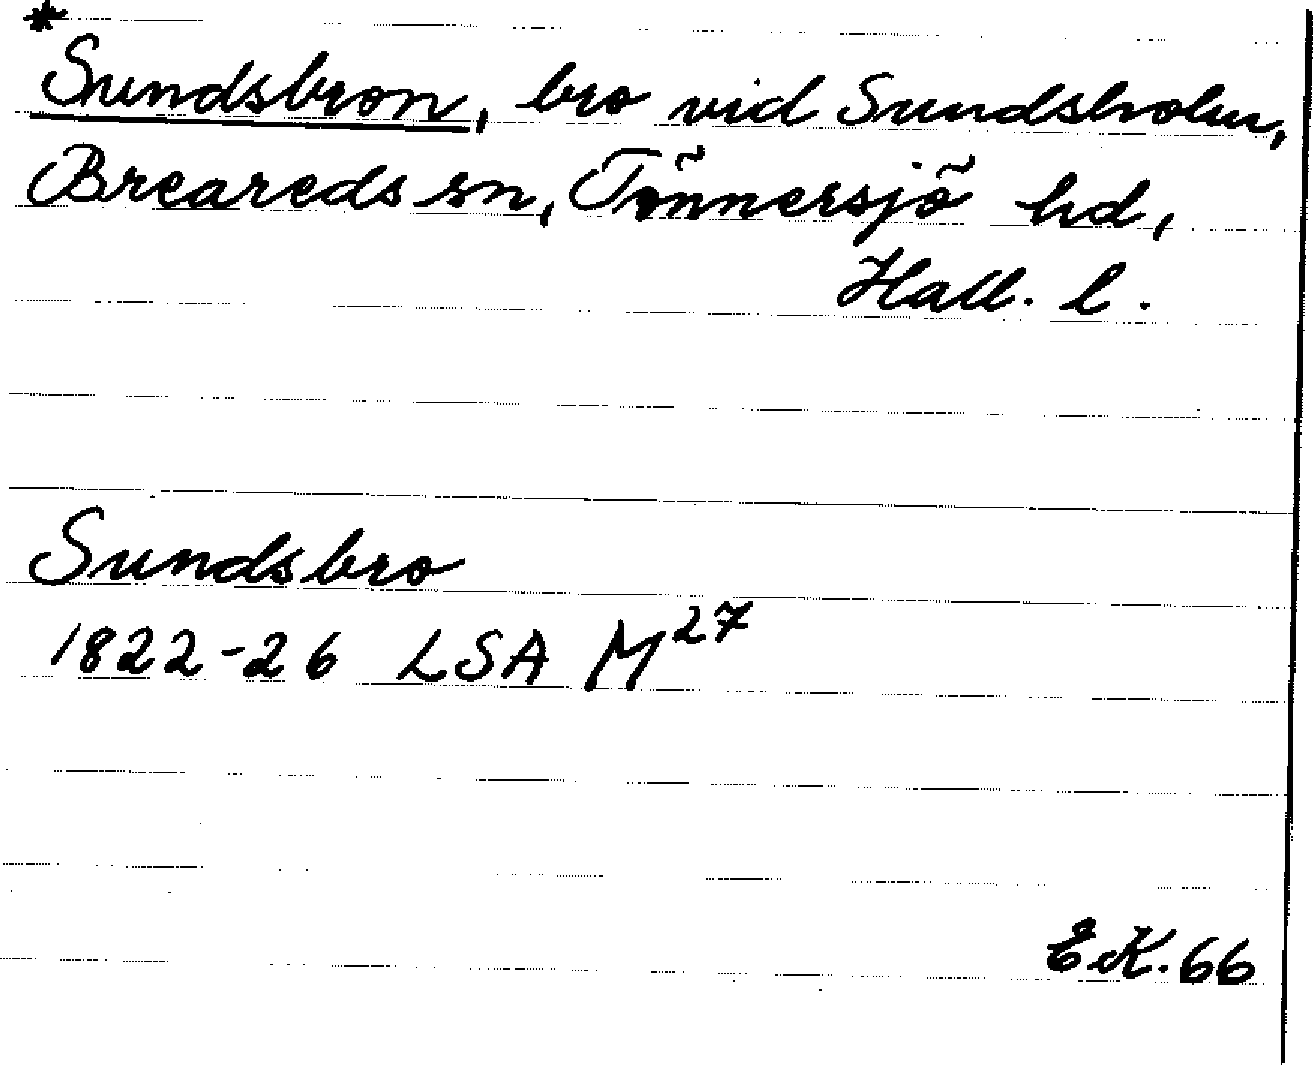 *
Sundsbron, bro vid Sundsholm,
Breareds sn, Tönnersjö hd,
Hall. l.
Sundsbro
1822-26 LSA M²⁷
E.K. 66